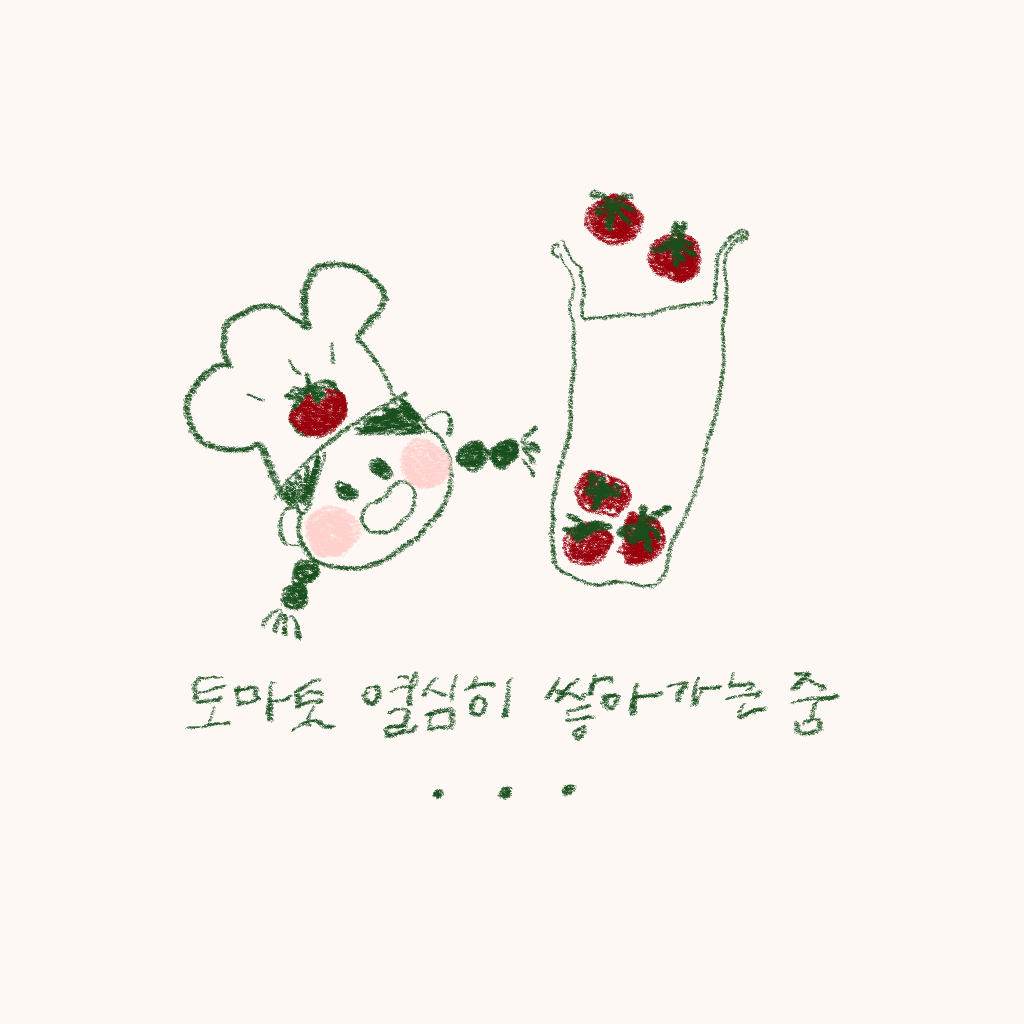 토마토 열심히 쌓아가는 중
...